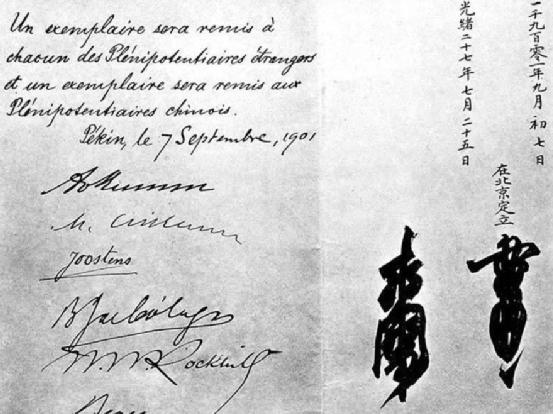 Un exemplaire sera remis à
chacun des Plénipotentiaires étrangers
et un exemplaire sera remis aux
Plénipotentiaires chinois.
Pékin, le 7 Septembre, 1901
Joostens
W. W. Rockhill
一千九百零一年九月初七日
光緒二十七年七月二十五日
在北京定立